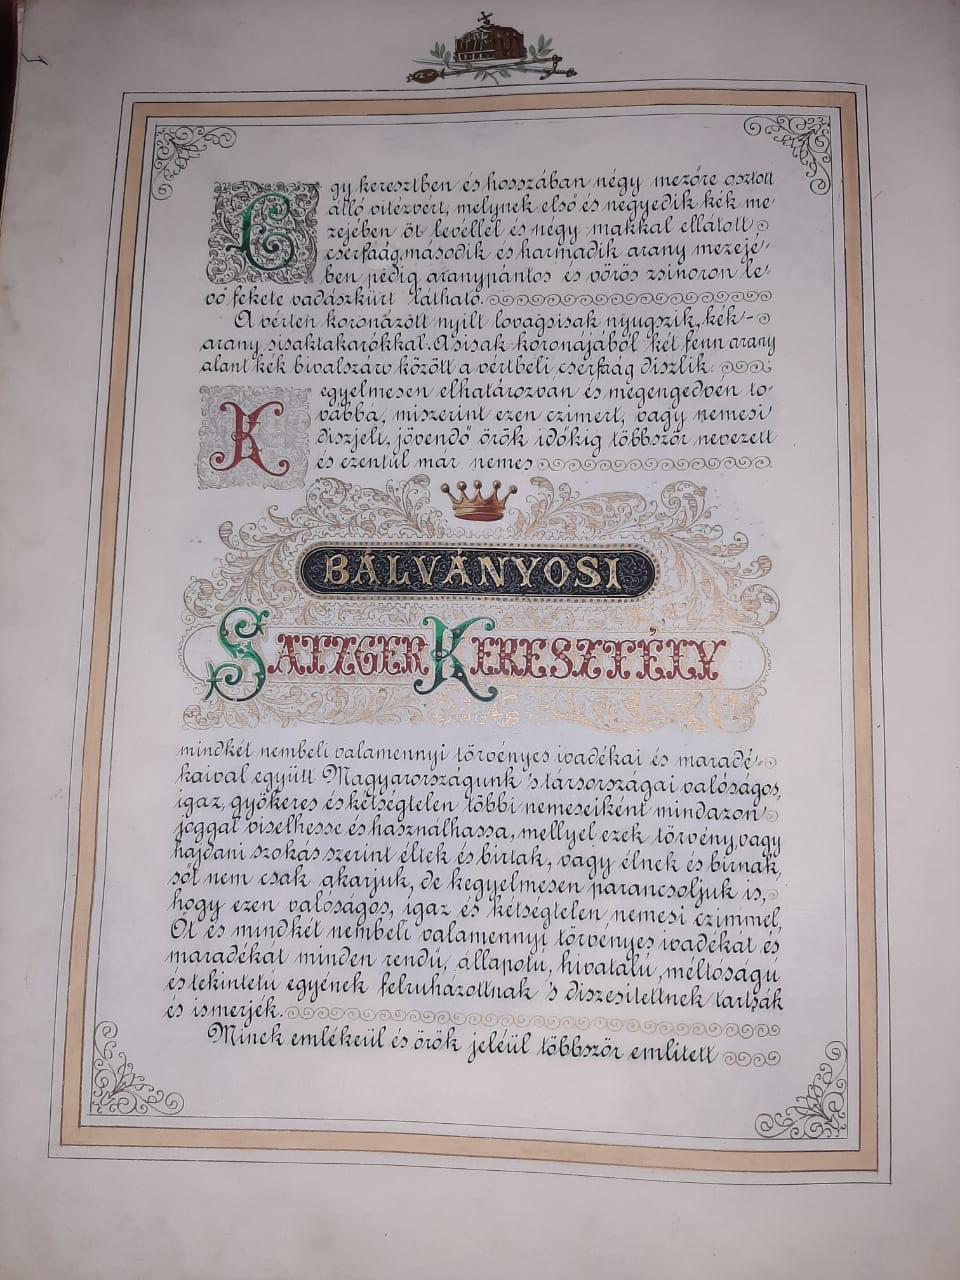 Egy keresztben és hosszában négy mezőre osztott
álló vitézvért, melynek első és negyedik kék me-
zejében öt levéllel és négy makkal ellátott
cserfaág, második és harmadik arany mezejé-
ben pedig aranypántos és vörös zsinoron le-
vő fekete vadászkürt látható.
A vérten koronázott nyilt lovagsisak nyugszik, kék-
arany sisaktakarókkal. A sisak koronájából két fenn arany
alant kék bivalszarv között a vértbeli cserfaág diszlik.
Kegyelmesen elhatározván és megengedvén to-
vábbá, miszerint ezen czimert, vagy nemesi
diszjelt, jövendő örök időkig többször nevezett
és ezentúl már nemes
BÁLVÁNYOSI
SATZGER KERESZTÉLY
mindkét nembeli valamennyi törvényes ivadékai és maradé-
kaival együtt Magyarországunk 's társországai valóságos,
igaz, gyökeres és kétségtelen többi nemeseiként mindazon
joggal viselhesse és használhassa, mellyel ezek törvény, vagy
hajdani szokás szerint éltek és birtak, vagy élnek és birnak,
sőt nem csak akarjuk, de kegyelmesen parancsoljuk is,
hogy ezen valóságos, igaz és kétségtelen nemesi czimmel,
Őt és mindkét nembeli valamennyi törvényes ivadékát és
maradékát minden rendű, állapotú, hivatalú, méltóságú
és tekintetű egyének felruházottnak 's diszesitettnek tartsák
és ismerjék.
Minek emlékeül és örök jeléül többször emlitett